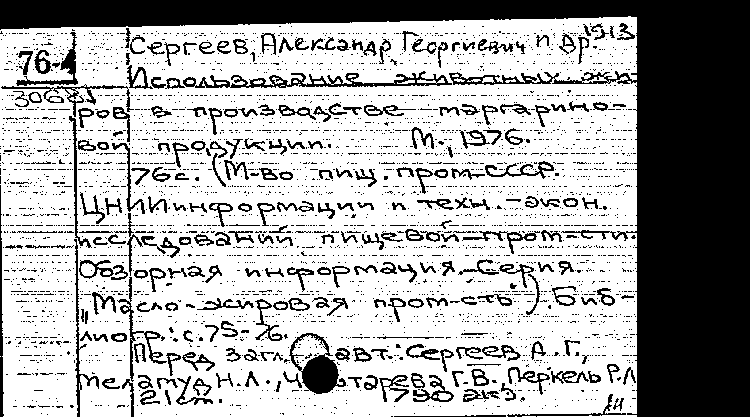 1913
Сергеев, Александр Георгиевич и др.
76-4
Использование животных жи-
30681
ров в производстве маргарино-
вой продукции. М., 1976.
76с. (М-во пищ. пром-СССР.
ЦНИИинформации и техн.-экон.
исследований пищевой-пром-сти.
Обзорная информация.-Серия.
"Масло-жировая пром-сть"). Биб-
лиогр.: с.75-76.
Перед загл. авт.: Сергеев А.Г.,
Меламуд, Н.Л., Г.В., Перкель Р.Л
21см. 1790 экз.